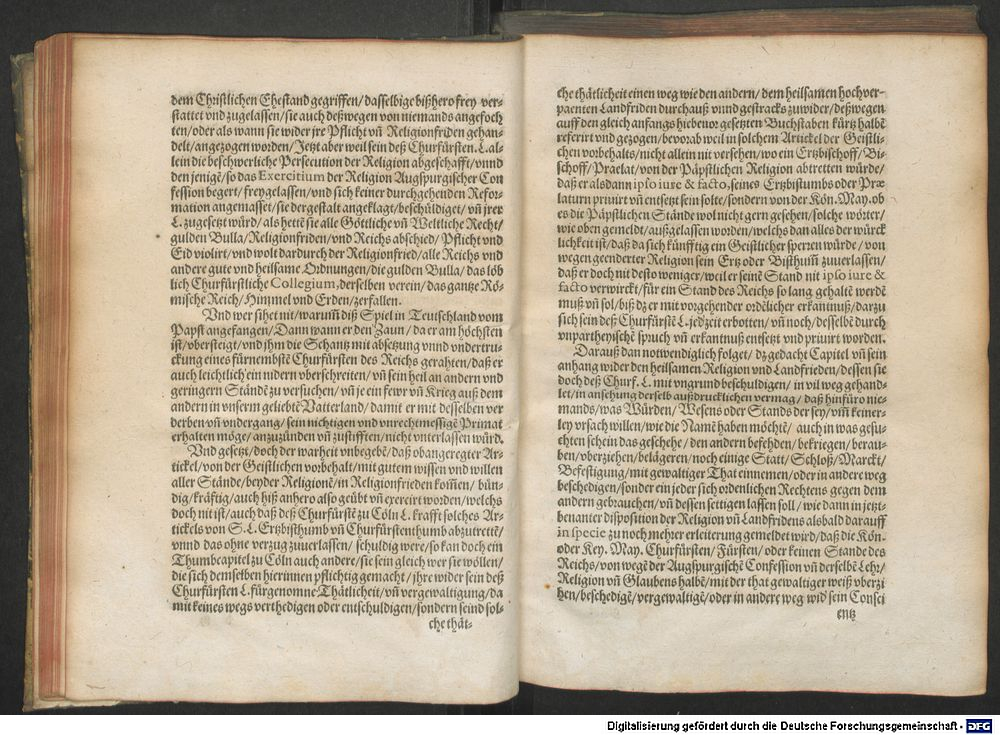 dem Christlichen Ehestand gegriffen/dasselbige bißhero frey ver-
stattet vnd zugelassen/sie auch deßwegen von niemands angefoch
ten/oder als wann sie wider jre Pflicht vñ Religionfriden gehan-
delt/angezogen worden/Jetzt aber weil sein deß Churfürsten.L.al-
lein die beschwerliche Persecution der Religion abgeschafft/vnnd
den jenigẽ/so das Exercitium der Religion Augspurgischer Con
fession begert/freygelassen/vnd sich keiner durchgehenden Refor-
mation angemasset/sie dergestalt angeklagt/beschüldiget/vñ jrer
L.zugesetzt würd/als hettẽ sie alle Göttliche vñ Weltliche Recht/
gulden Bulla/Religionfriden/vnd Reichs abschied/Pflicht vnd
Eid violirt/vnd wolt dardurch der Religionfried/alle Reichs vnd
andere gute vnd heilsame Ordnungen/die gulden Bulla/das löb
lich Churfürstliche Collegium,derselben verein/das gantze Rö-
mische Reich/Himmel vnd Erden/zerfallen.
Vnd wer sihet nit/warum̃ diß Spiel in Teutschland vom
Papst angefangen/Dann wann er den Zaun/da er am höchsten
ist/vbersteigt/vnd jhm die Schantz mit absetzung vnnd vndertru-
ckung eines fürnembstẽ Churfürsten des Reichs gerahten/daß er
auch leichtlich ein nidern vberschreiten/vñ sein heil an andern vnd
geringern Ständẽ zu versuchen/vñ je ein fewr vñ Krieg auß dem
andern in vnserm geliebtẽ Vatterland/damit er mit desselben ver
derben vñ vndergang/sein nichtigen vnd vnrechmessigẽ Primat
erhalten möge/anzuzünden vñ zustifften/nicht vnterlassen würd.
Vnd gesetzt/doch der warheit vnbegebẽ/daß obangeregter Ar-
tickel/von der Geistlichen vorbehalt/mit gutem wissen vnd willen
aller Stände/beyder Religionẽ/in Religionfrieden kom̃en/bün-
dig/kräftig/auch biß anhero also geübt vñ exercirt worden/welchs
doch nit ist/auch daß deß Churfürstẽ zu Cöln L.krafft solches Ar-
tickels von S.L.Ertzbisthumb vñ Churfürstenthumb abzutrettẽ/
vnnd das ohne verzug zuuerlassen/schuldig were/so kan doch ein
Thumbcapitel zu Cöln auch andere/sie sein gleich wer sie wöllen/
die sich demselben hierinnen pflichtig gemacht/jhre wider sein deß
Churfürsten L.fürgenomne Thätlicheit/vñ vergewaltigung/da
mit keines wegs verthedigen oder entschuldigen/sondern seind sol-
che thät-
che thätlicheit einen weg wie den andern/dem heilsamen hochver-
paenten Landfriden durchauß vnnd gestracks zuwider/deßwegen
auff den gleich anfangs hiebeuor gesetzten Buchstaben kürtz halbẽ
referirt vnd gezogen/bevorab weil in solchem Artickel der Geistli-
chen vorbehalts/nicht allein nit versehen/wo ein Ertzbischoff/Bi-
schoff/Praelat/von der Päpstlichen Religion abtretten würde/
daß er alsdann ipso iure & facto,seines Ertzbistumbs oder Præ
laturn priuirt vñ entsetzt sein solte/sondern von der Kön.May.ob
es die Päpstlichen Stände wol nicht gern gesehen/solche wörter/
wie oben gemeldt/außgelassen worden/welchs dan alles der würck
lichkeit ist/daß da sich künfftig ein Geistlicher sperren würde/von
wegen geenderter Religion sein Ertz oder Bisthum̃ zuuerlassen/
daß er doch nit desto weniger/weil er seinẽ Stand nit ipso iure &
facto verwirckt/für ein Stand des Reichs so lang gehaltẽ werdẽ
muß vñ sol/biß dz er mit vorgehender ordẽlicher erkantnuß/darzu
sich sein deß Churfürstẽ L.jedzeit erbotten/vñ noch/desselbẽ durch
vnpartheyischẽ spruch vñ erkantnuß entsetzt vnd priuirt worden.
Darauß dan notwendiglich folget/dz gedacht Capitel vñ sein
anhang wider den heilsamen Religion vnd Landfrieden/dessen sie
doch deß Churf.L.mit vngrund beschuldigen/in vil weg gehand-
let/in ansehung derselb außdrucklichen vermag/daß hinfüro nie-
mands/was Würden/Wesens oder Stands der sey/vm̃ keiner-
ley vrsach willen/wie die Namẽ haben möchtẽ/auch in was gesu-
chten schein das geschehe/den andern befehden/bekriegen/berau-
ben/vberziehen/belägeren/noch einige Statt/Schloß/Marckt/
Befestigung/mit gewaltiger That einnemen/oder in andere weg
beschedigen/sonder ein jeder sich ordenlichen Rechtens gegen dem
andern gebrauchen/vñ dessen settigen lassen soll/wie dann in jetzt-
benanter disposition der Religion vñ Landfridens alsbald darauff
in specie zu noch mehrer erleiterung gemeldet wird/daß die Kön-
oder Key.May.Churfürsten/Fürsten/oder keinen Stande des
Reichs/von wegẽ der Augspurgischẽ Confession vñ derselbẽ Lehr/
Religion vñ Glaubens halbẽ/mit der that gewaltiger weiß vberzi
hen/beschedigẽ/vergewaltigẽ/oder in andere weg wid sein Consci
entz
Digitalisierung gefördert durch die Deutsche Forschungsgemeinschaft - DFG